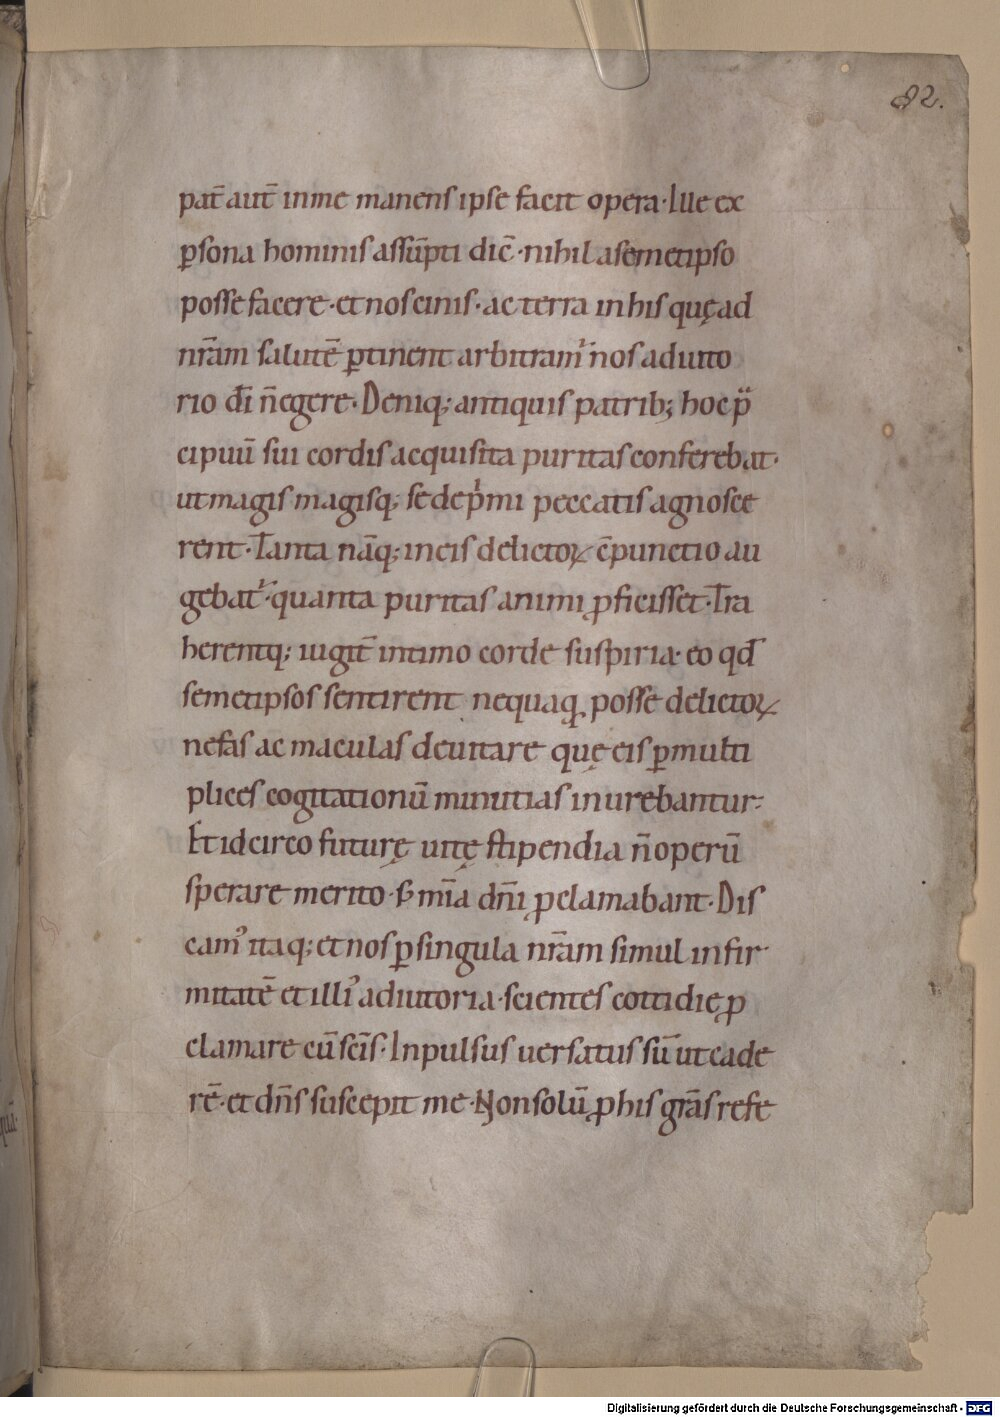 82.
pat̄ aut̄ in me manens ipse facit opera· Ille ex
ꝑsona hominis assūpti dic̄· nihil a semetipso
posse facere· et nos cinis· ac terra in his quę ad
nr̄am salutē ꝑtinent arbitram᷑ nos adiuto
rio dī n̄ egere· Deniq; antiquis patrib; hoc p̄
cipuū sui cordis acquisita puritas conferebat·
ut magis magisq; se dep̍mi peccatis agnosce
rent· Tanta nāq; in eis delictoꝝ c̄punctio au
gebat᷑· quanta puritas animi ꝓficisset· Tra
herentq; iugit̄ intimo corde suspiria· eo qd̄
semetipsos sentirent nequaq̨ posse delictoꝝ
nefas ac maculas deuitare quę eis ꝑ multi
plices cogitationū minutias inurebantur·
Et idcirco futurę uitę stipendia n̄ operū
sperare merito· s; mīa dn̄i ꝓclamabant· Dis
cam᾽ itaq; et nos ꝑ singula nr̄am simul infir
mitatē et illi᾽ adiutoria· scientes cottidie ꝓ
clamare cū sc̄is· Inpulsus uersatus sū ut cade
rē· et dn̄s suscepit me· Non solū ꝓ his grās refe
quā·
Digitalisierung gefördert durch die Deutsche Forschungsgemeinschaft - DFG